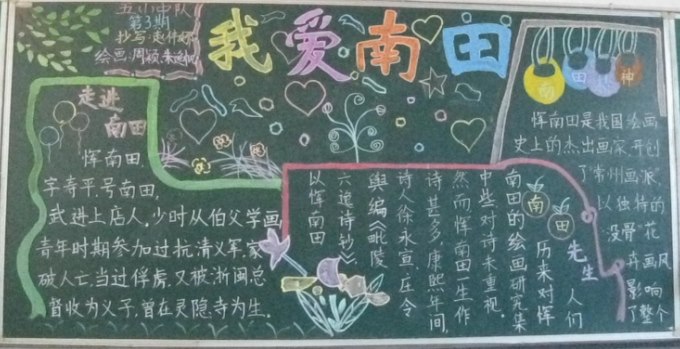 五小中队
第3期
抄写:赵伟
绘画:周颖
我爱南田
走进
南田
恽南田
字寿平,号南田,
武进上店人,少时从伯父学画
青年时期参加过抗清义军,家
破人亡,当过俘虏,又被浙闽总
督收为义子,曾在灵隐寺为生。
南田
先生
人们
历来对恽
南田的绘画研究集
中些对诗来重视。
然而恽南田一生作
诗甚多,康熙年间,
诗人徐永宣、庄令
舆编《毗陵
六逸诗钞》,
以恽南田
南田 神
恽南田是我国绘画
史上的杰出画家,开创
了“常州画派”
以独特的
“没骨”花
卉画风
影响
了整个